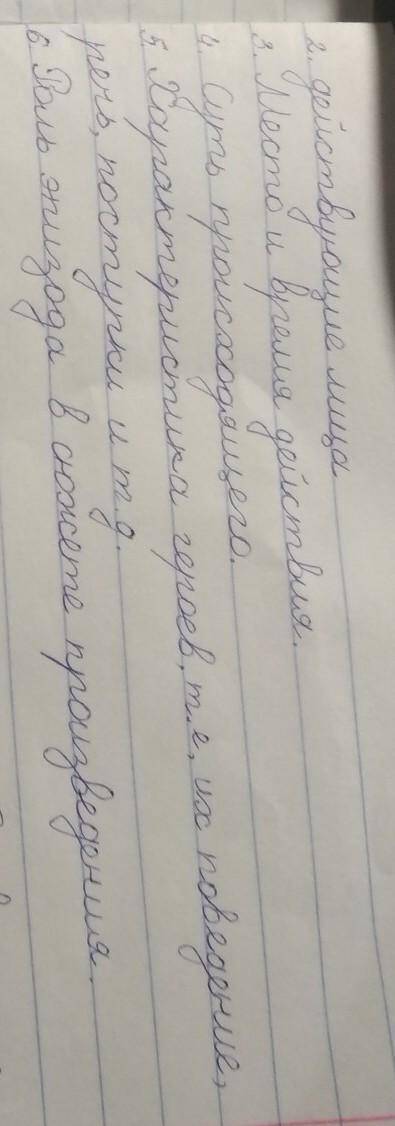 2. действующие лица
3. Место и время действия.
4. Суть происходящего.
5. Характеристика героев, т.е, их поведение,
речь, поступки и т.д.
6. Роль эпизода в сюжете произведения.